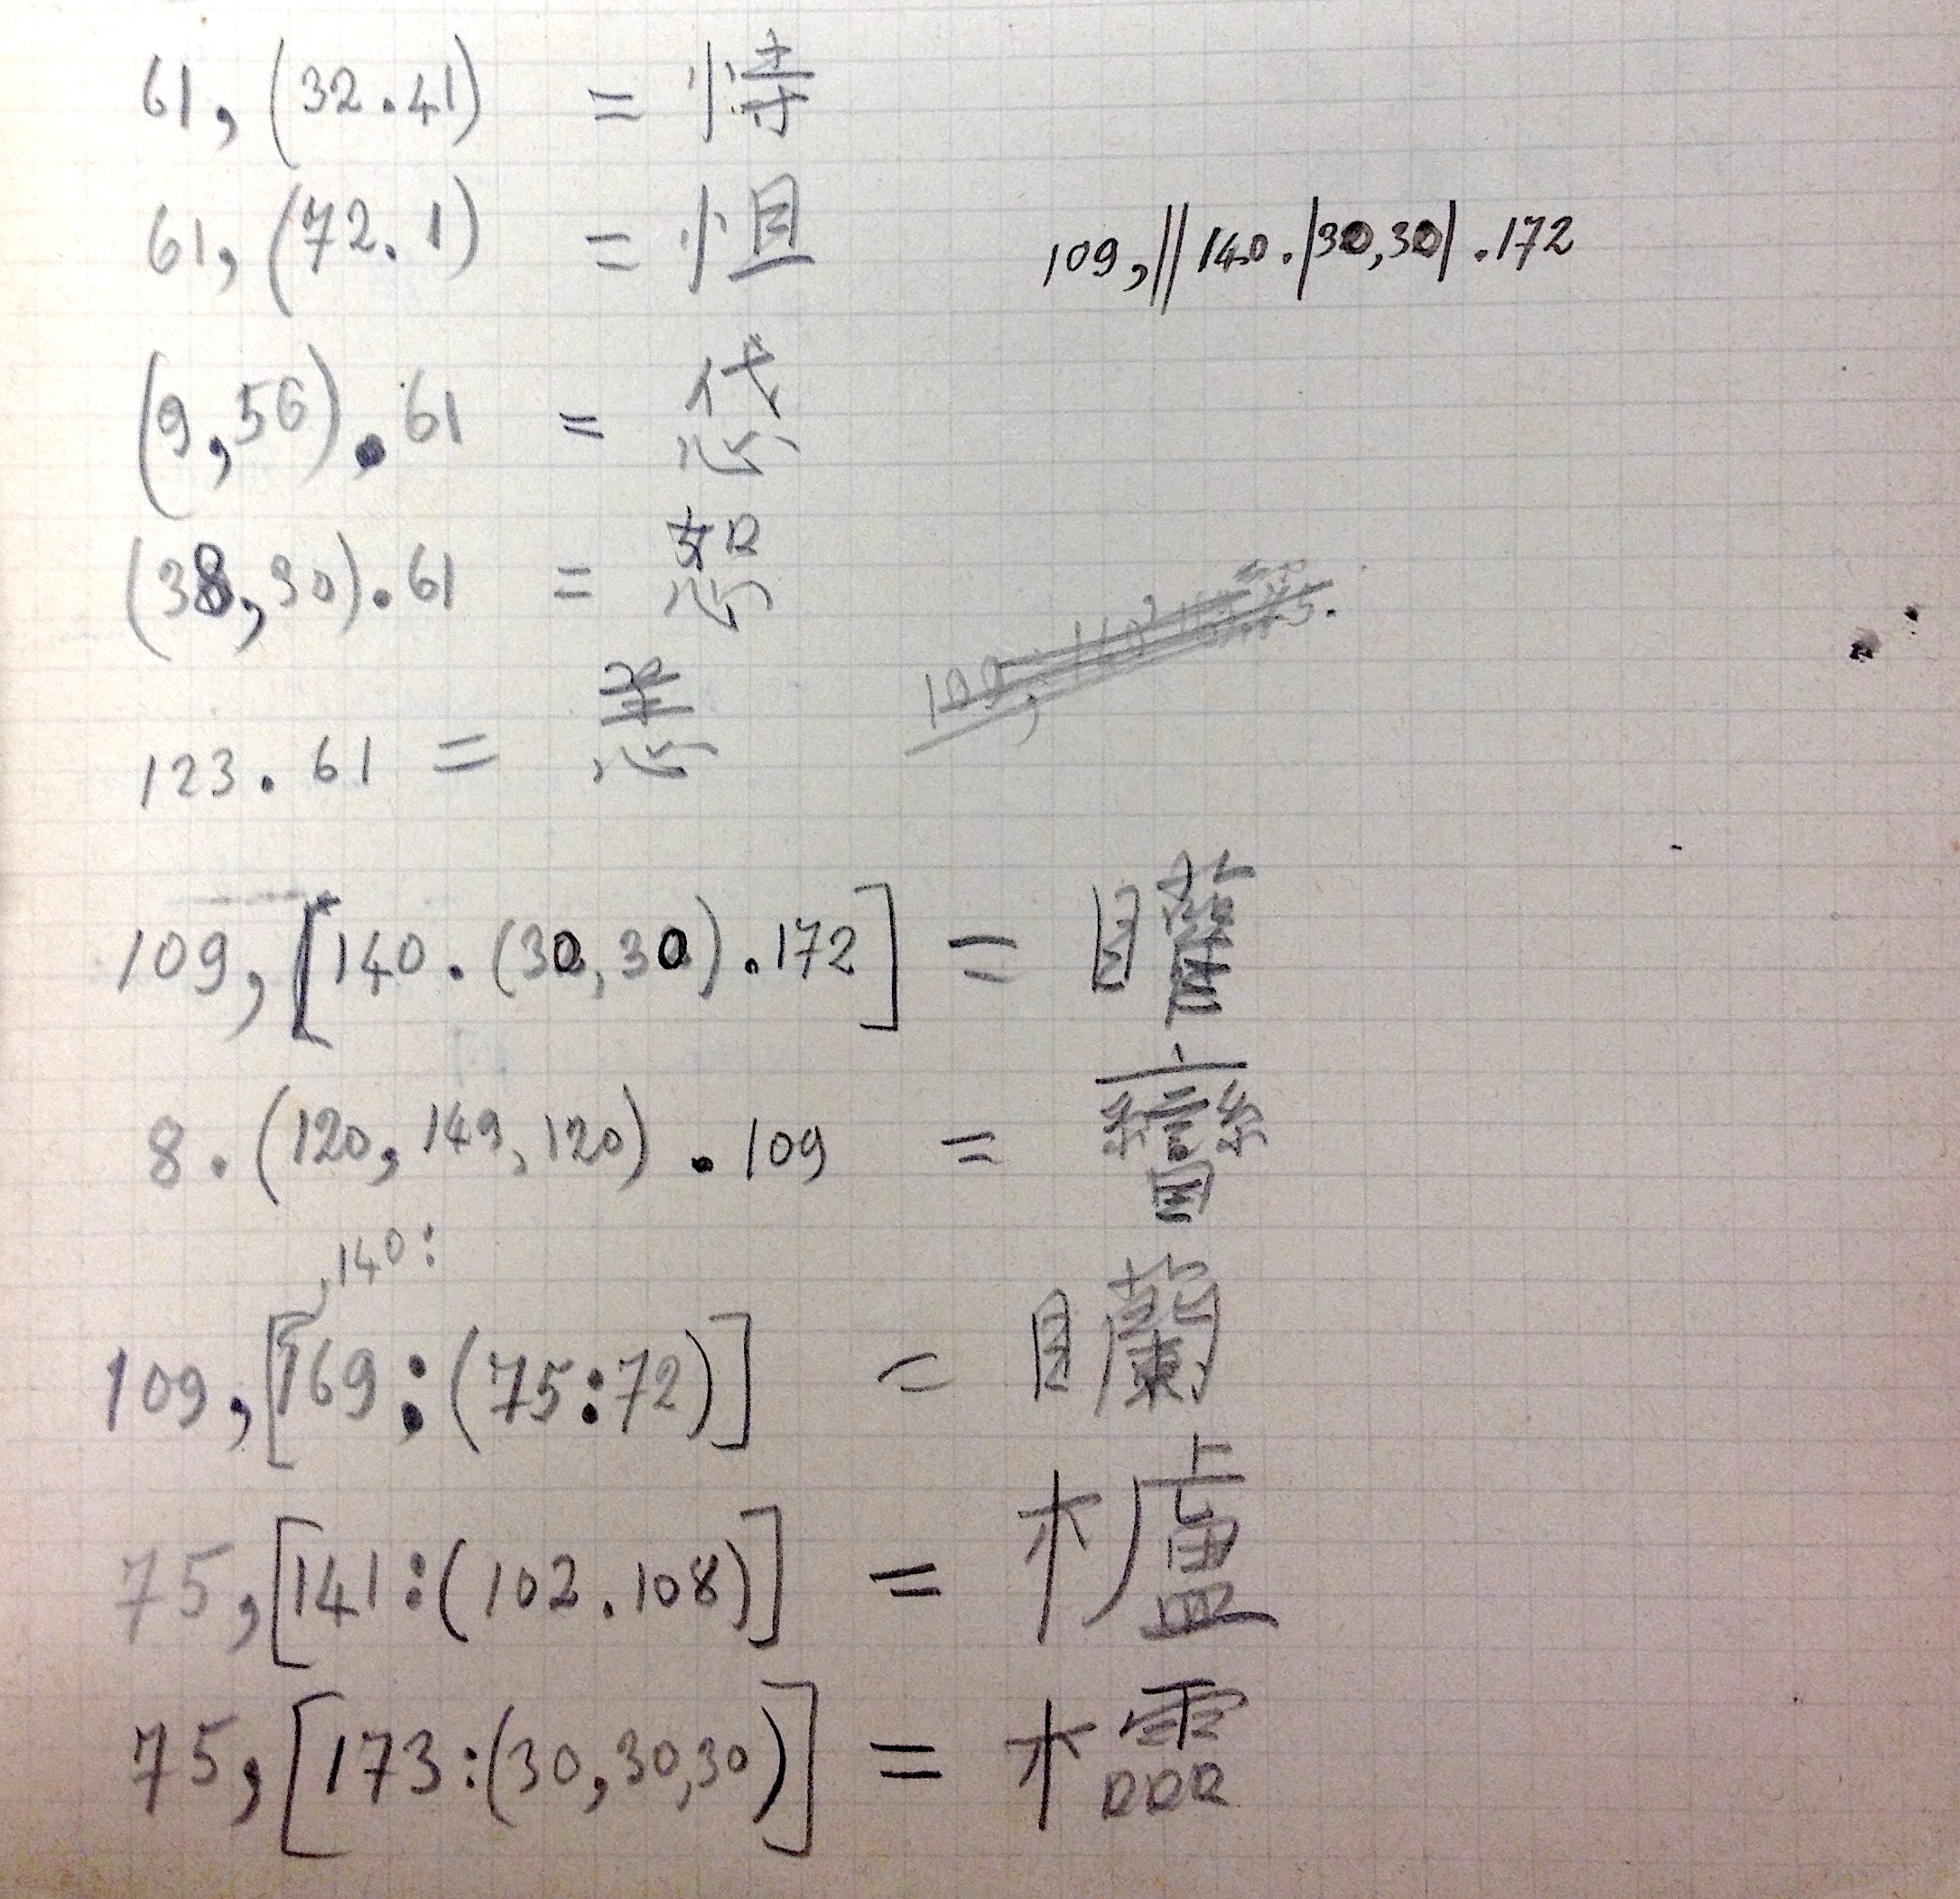 61, (32.41) = 恃
61, (72.1) = 怛
109, || 140 . |30,30| .172
(9,56).61 = 𢘋
(38,30).61 = 恕
123.61 = 恙
109, [140.(30,30).172] = 矔
8.(120,149,120).109 = 矕
,140:
109, [169:(75:72)] = 矙
75, [141:(102.108)] = 櫨
75, [173:(30,30,30)] = 櫺